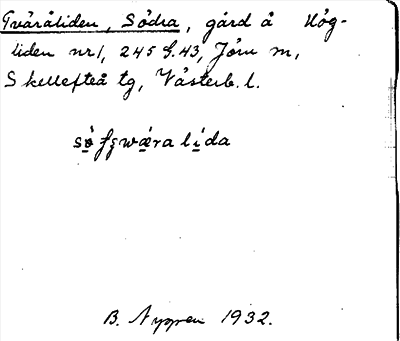 Tvåråliden, Södra, gård å Hög-
liden nr 1, 245 G.43, Jörn sn,
Skellefteå tg, Västerb. l.
B. Nygren 1932.